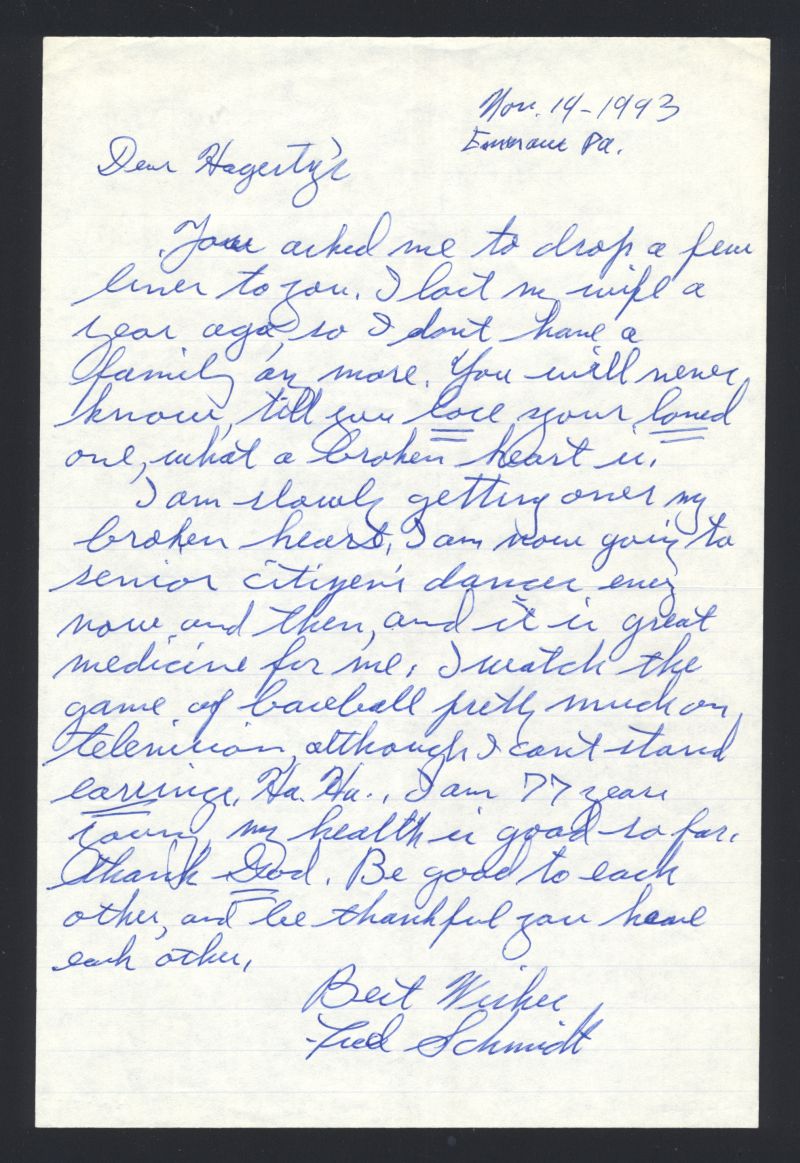 Nov. 19-1993
Emmaus Pa.
Dear Hagerty's
You asked me to drop a few
lines to you. I lost my wife a
year ago, so I dont have a
family any more. You will never
know, till you lose your loved
one, what a broken heart is.
I am slowly getting over my
broken heart, I am now going to
senior citizen's dances every
now and then, and it is great
medicine for me. I watch the
game of baseball pretty much on
television, although I cant stand
earrings, Ha. Ha.. I am 77 years
young, my health is good so far.
thank God. Be good to each
other, and be thankful you have
each other.
Best Wishes
Fred Schmidt